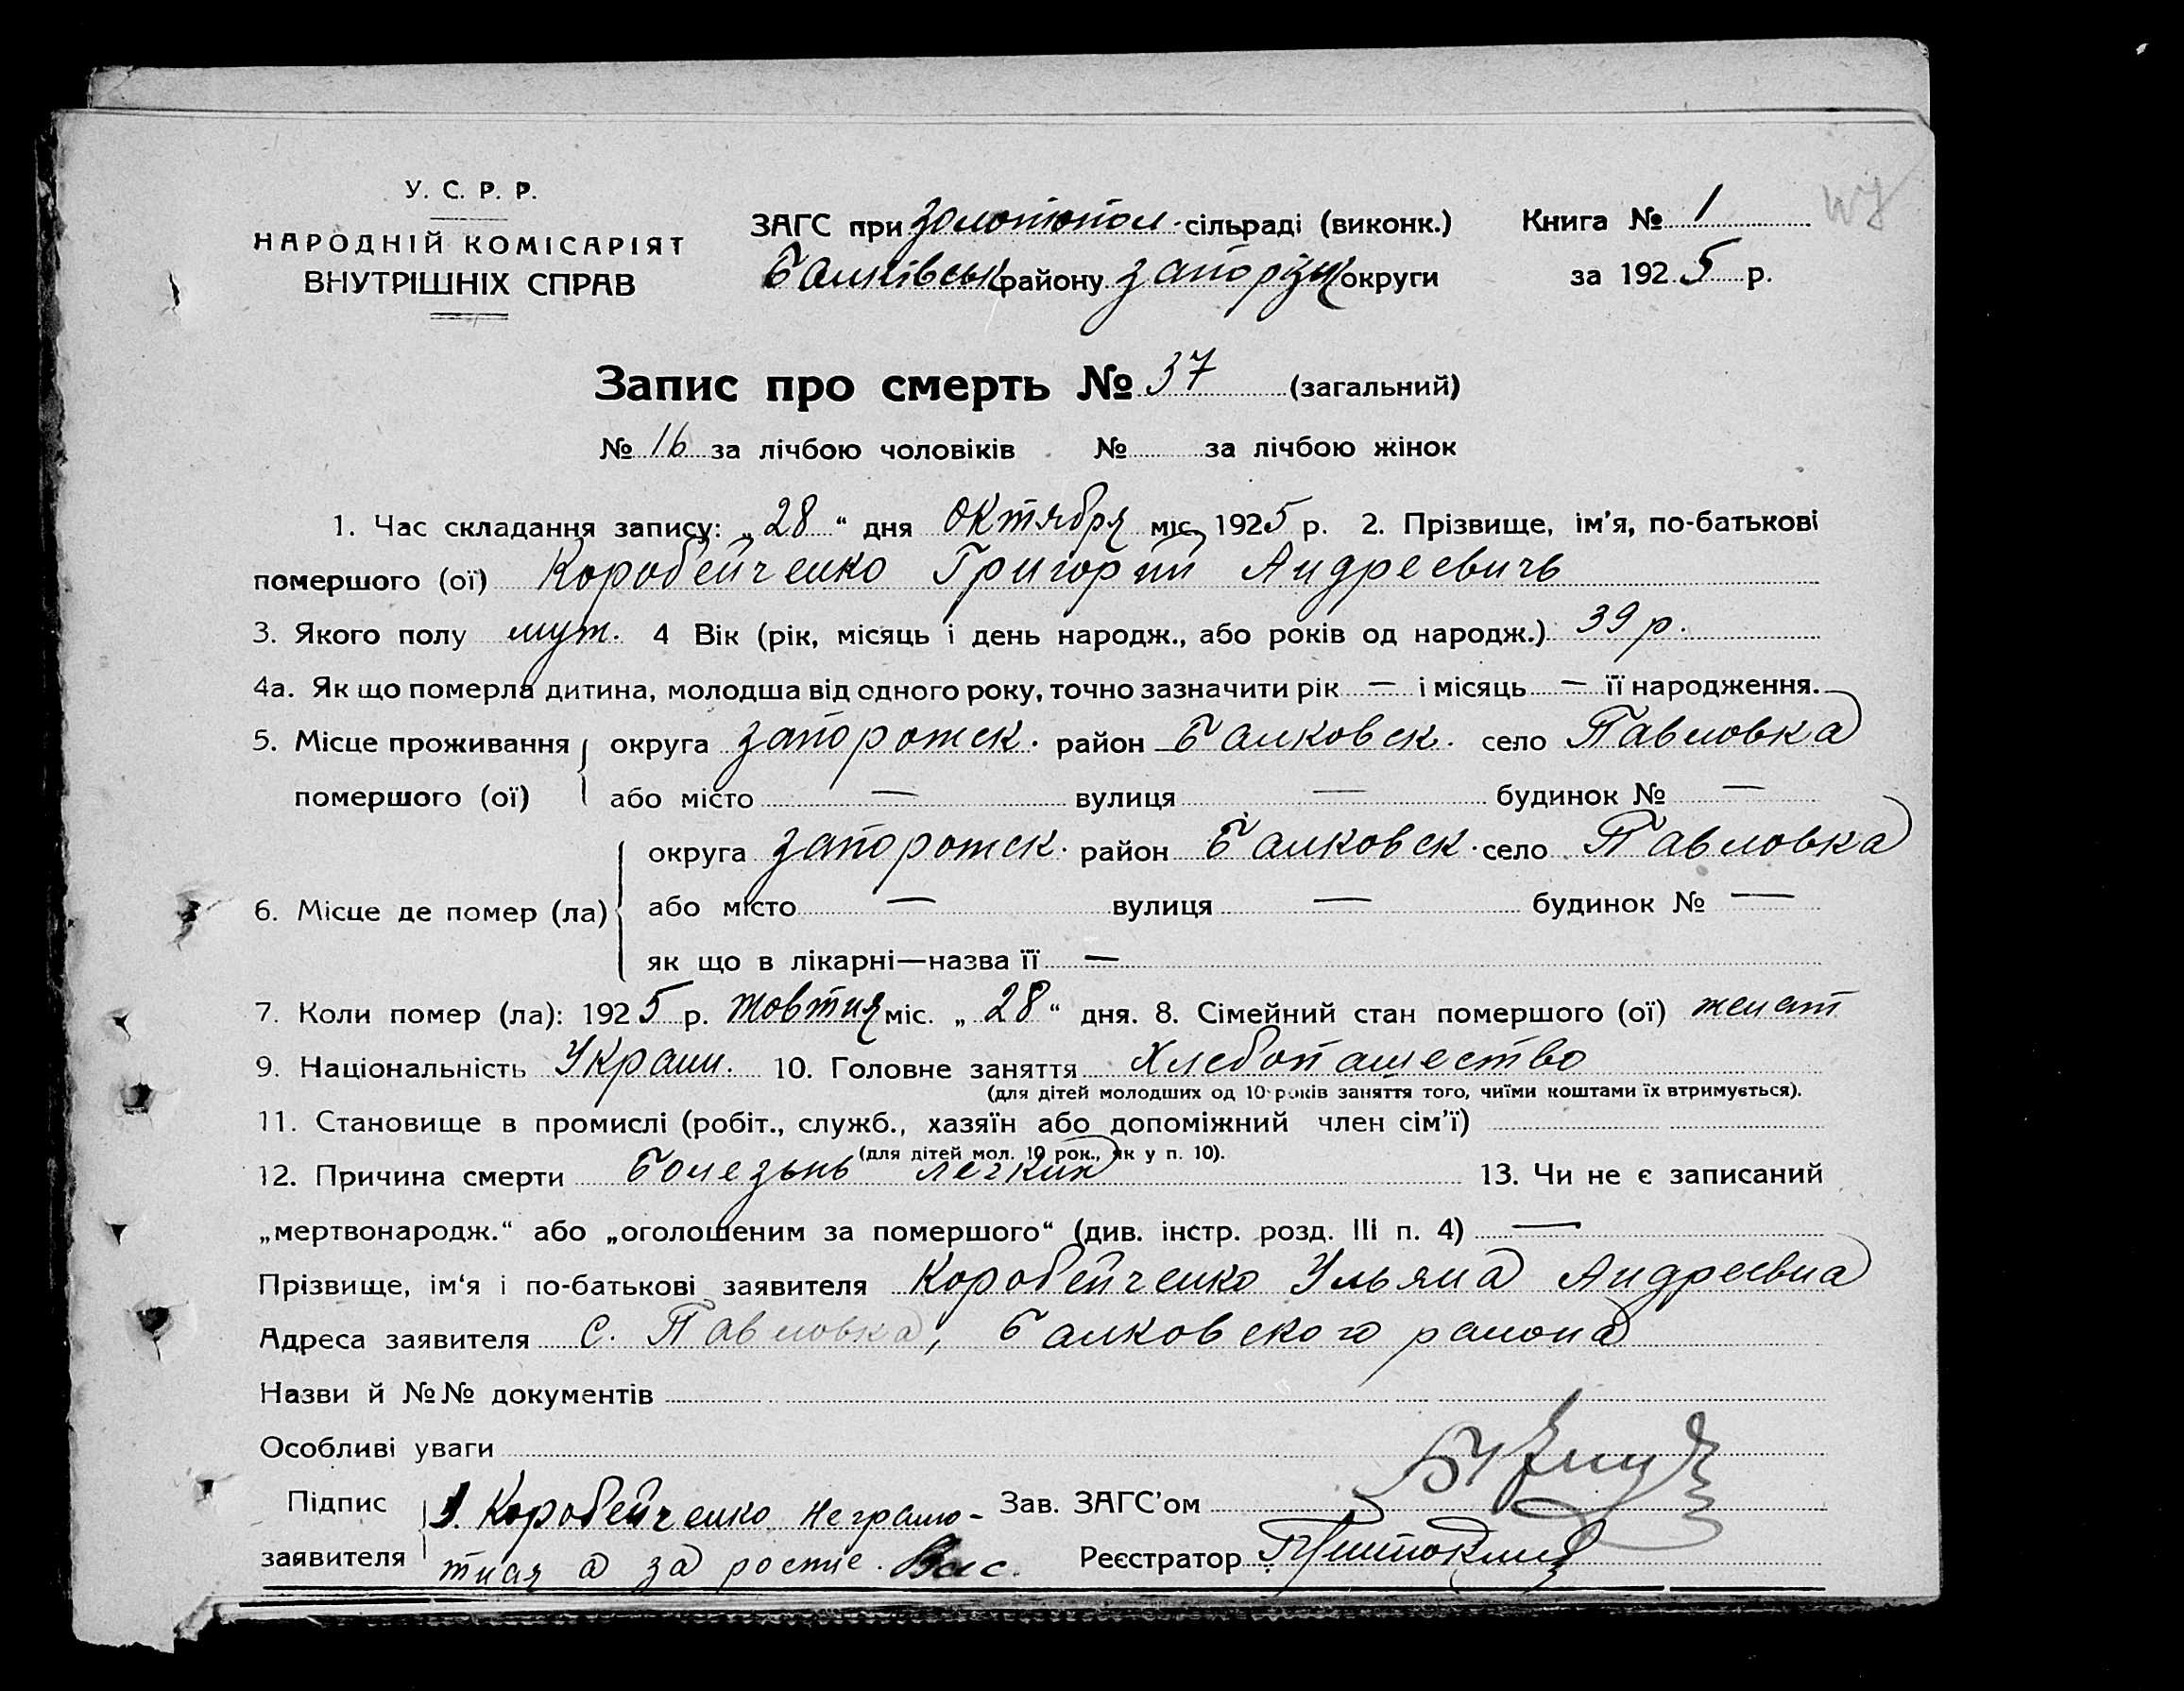 У. С. Р. Р.
НАРОДНІЙ КОМІСАРІЯТ
ВНУТРІШНІХ СПРАВ
ЗАГС при Золотопол. сільраді (виконк.)
Балківськ району Запоріж округи
Книга № 1
за 1925 р.
Запис про смерть № 37 (загальний)
№ 16 за лічбою чоловіків № за лічбою жінок
1. Час складання запису: „28“ дня Октября міс. 1925 р. 2. Прізвище, ім'я, по-батькові
помершого (ої) Коробейченко Григорий Андреевичь
3. Якого полу муж. 4 Вік (рік, місяць і день народж., або років од народж.) 39 р.
4а. Як що померла дитина, молодша від одного року, точно зазначити рік — і місяць — її народження.
5. Місце проживання округа Запорожск. район Балковск. село Павловка
помершого (ої) або місто — вулиця — будинок № —
округа Запорожск. район Балковск. село Павловка
6. Місце де помер (ла) або місто — вулиця — будинок № —
як що в лікарні—назва її —
7. Коли помер (ла): 1925 р. жовтня міс. „28“ дня. 8. Сімейний стан помершого (ої) женат
9. Національність Украин. 10. Головне заняття Хлебопашество
(для дітей молодших од 10 років заняття того, чиїми коштами їх втримується).
11. Становище в промислі (робіт., служб., хазяїн або допоміжний член сім'ї)
(для дітей мол. 10 рок., як у п. 10).
12. Причина смерти Болезьнь легких 13. Чи не є записаний
„мертвонародж.“ або „оголошеним за помершого“ (див. інстр. розд. III п. 4) —
Прізвище, ім'я і по-батькові заявителя Коробейченко Ульяна Андреевна
Адреса заявителя с. Павловка, Балковского района
Назви й №№ документів
Особливі уваги
Підпис Коробейченко неграмо-
заявителя тная а за
Зав. ЗАГС'ом
Реєстратор